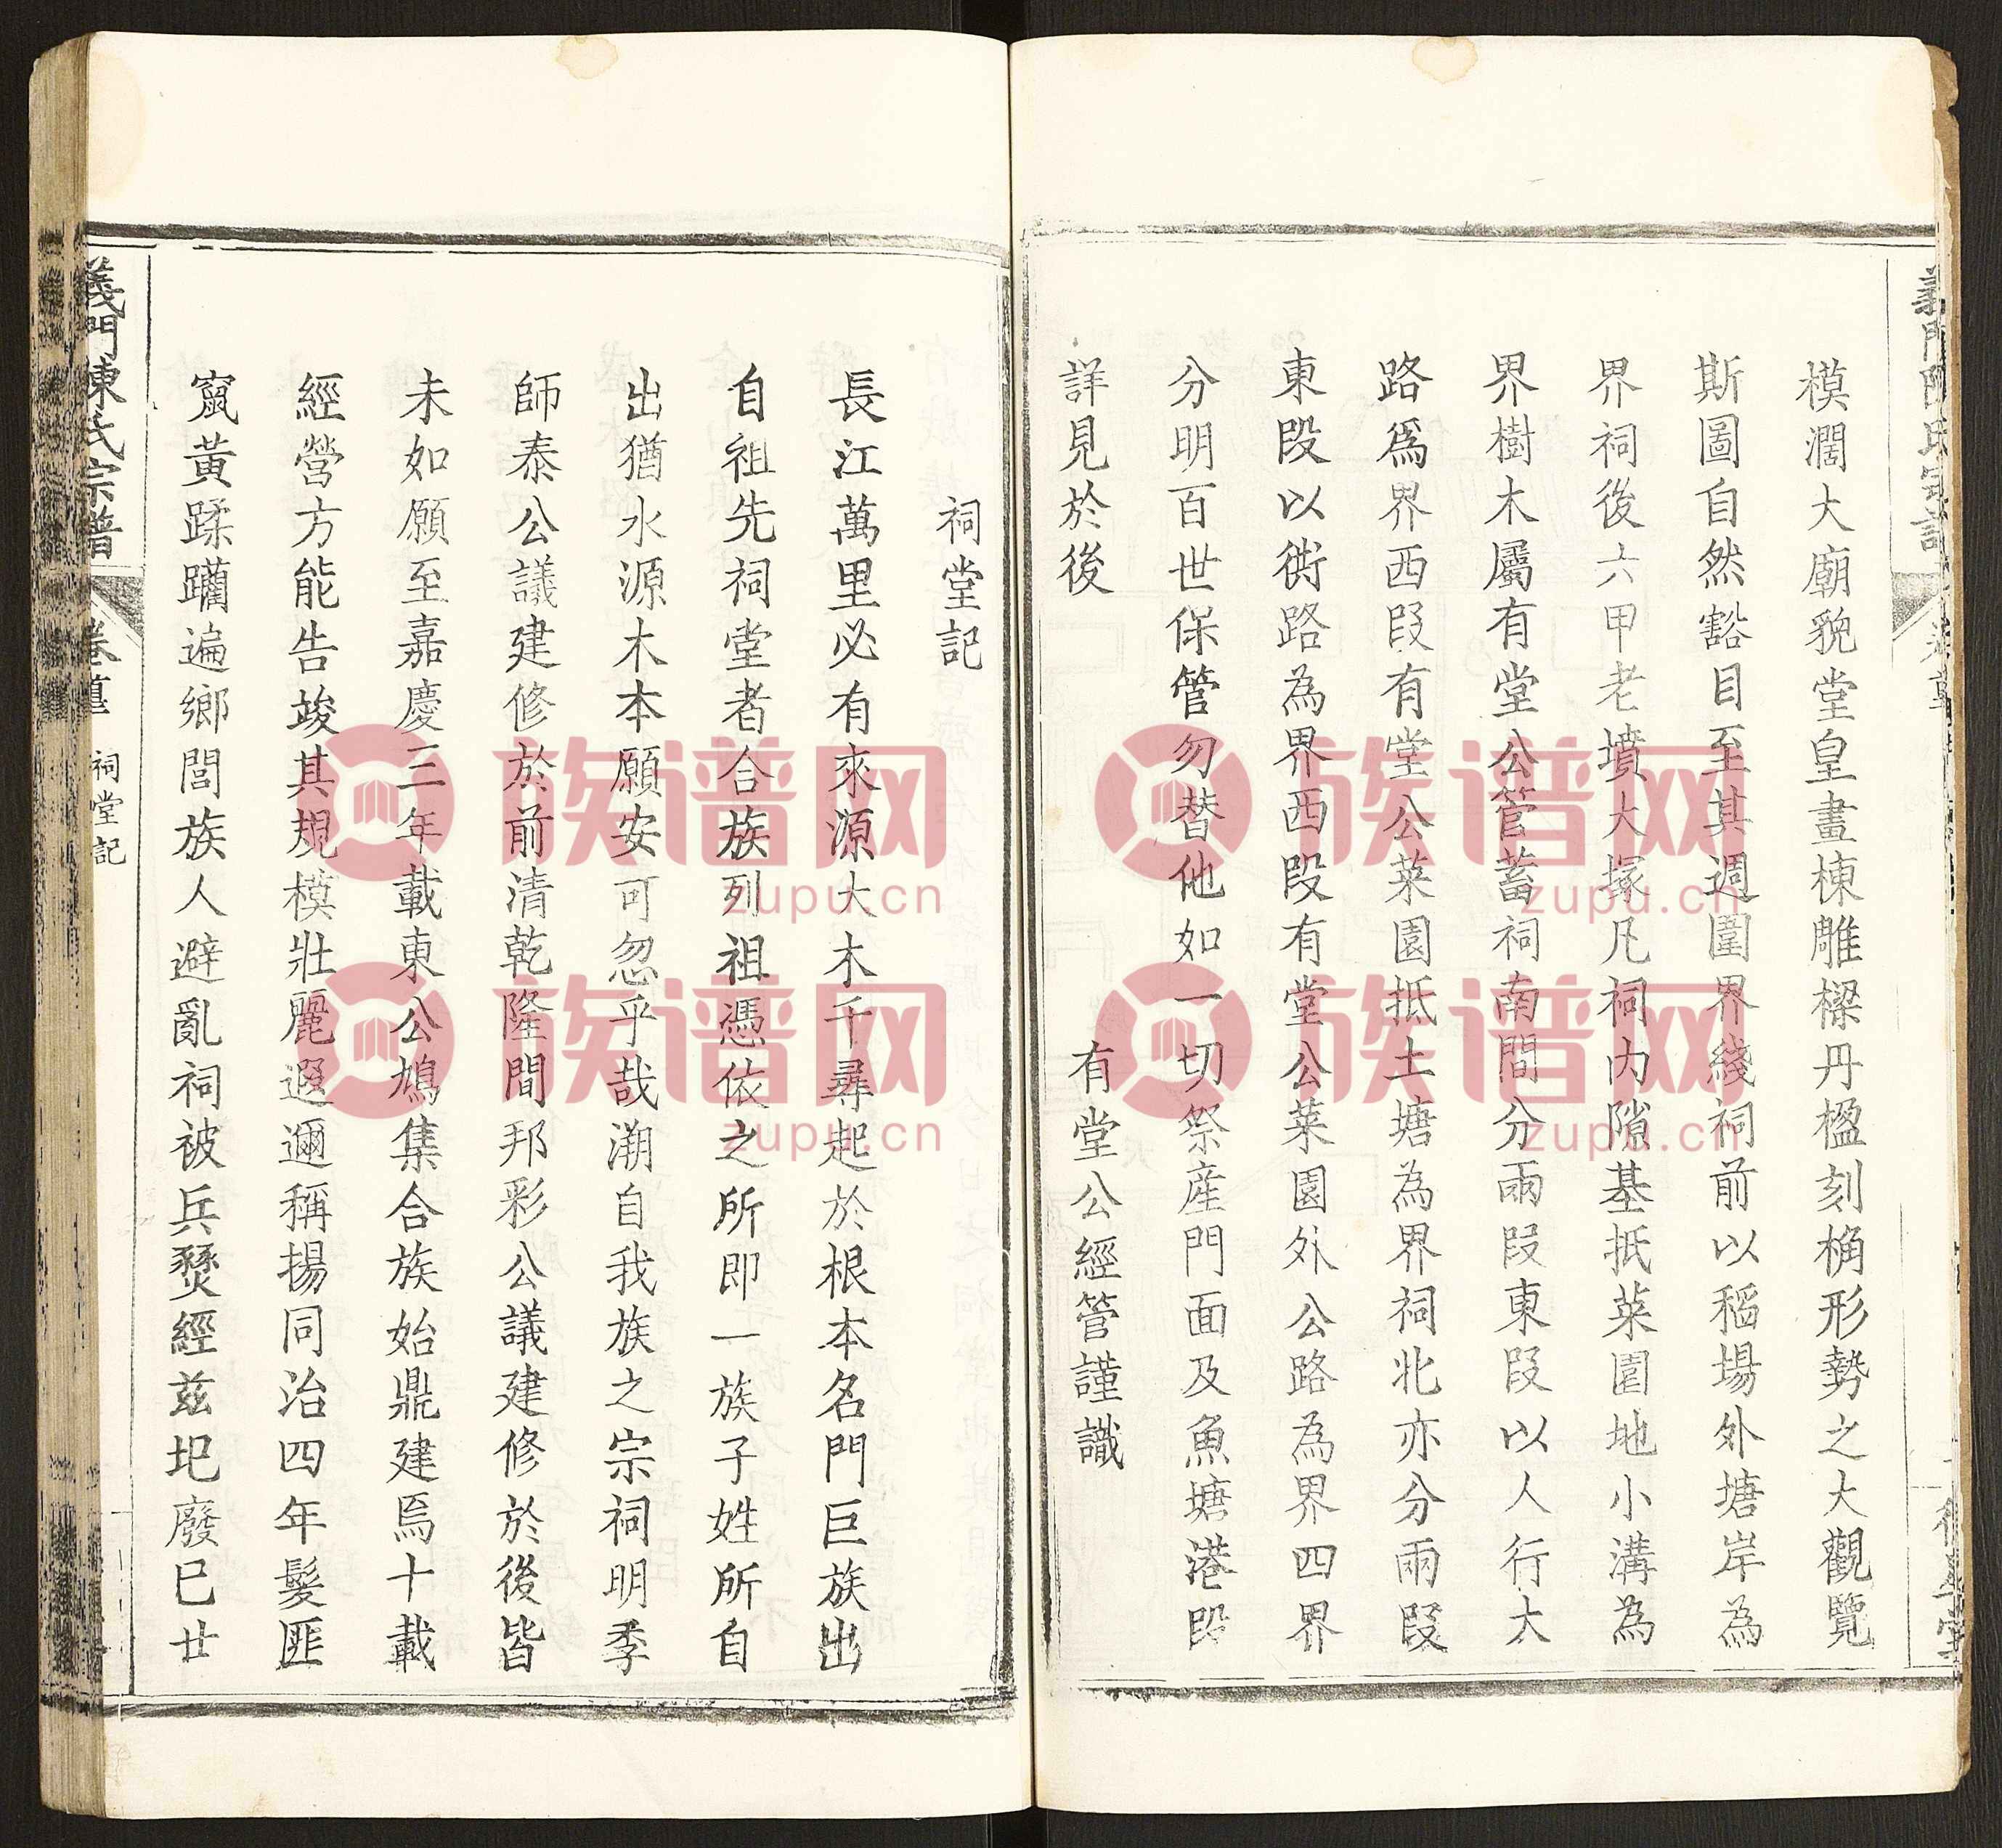 模濶大廟貌堂皇畫棟雕樑丹楹刻桷形勢之大觀覽
斯圖自然豁目至其週圍界綫祠前以稻場外塘岸為
界祠後六甲老墳大塚凡祠内隙基抵菜園地小溝為
界樹木屬有堂公管蓄祠南間分兩叚東叚以人行大
路爲界西叚有堂公菜園抵土塘為界祠北亦分兩叚
東叚以衖路為界西叚有堂公菜園外公路為界四界
分明百世保管勿替他如一切祭産門面及魚塘港叚
詳見於後　　　有堂公經管謹識
祠堂記
長江萬里必有來源大木千尋起於根本名門巨族出
自祖先祠堂者合族列祖憑依之所即一族子姓所自
出猶水源木本願安可忽乎哉溯自我族之宗祠明季
師泰公議建修於前清乾隆間邦彩公議建修於後皆
未如願至嘉慶三年載東公鳩集合族始鼎建焉十載
經營方能告竣其規模壯麗遐邇稱揚同治四年髮匪
竄黃蹂躪遍鄉閭族人避亂祠被兵燹經兹圯廢已廿
義門陳氏宗譜
卷
祠堂記
族谱网
zupu.cn
族谱网
zupu.cn
族谱网
zupu.cn
族谱网
zupu.cn